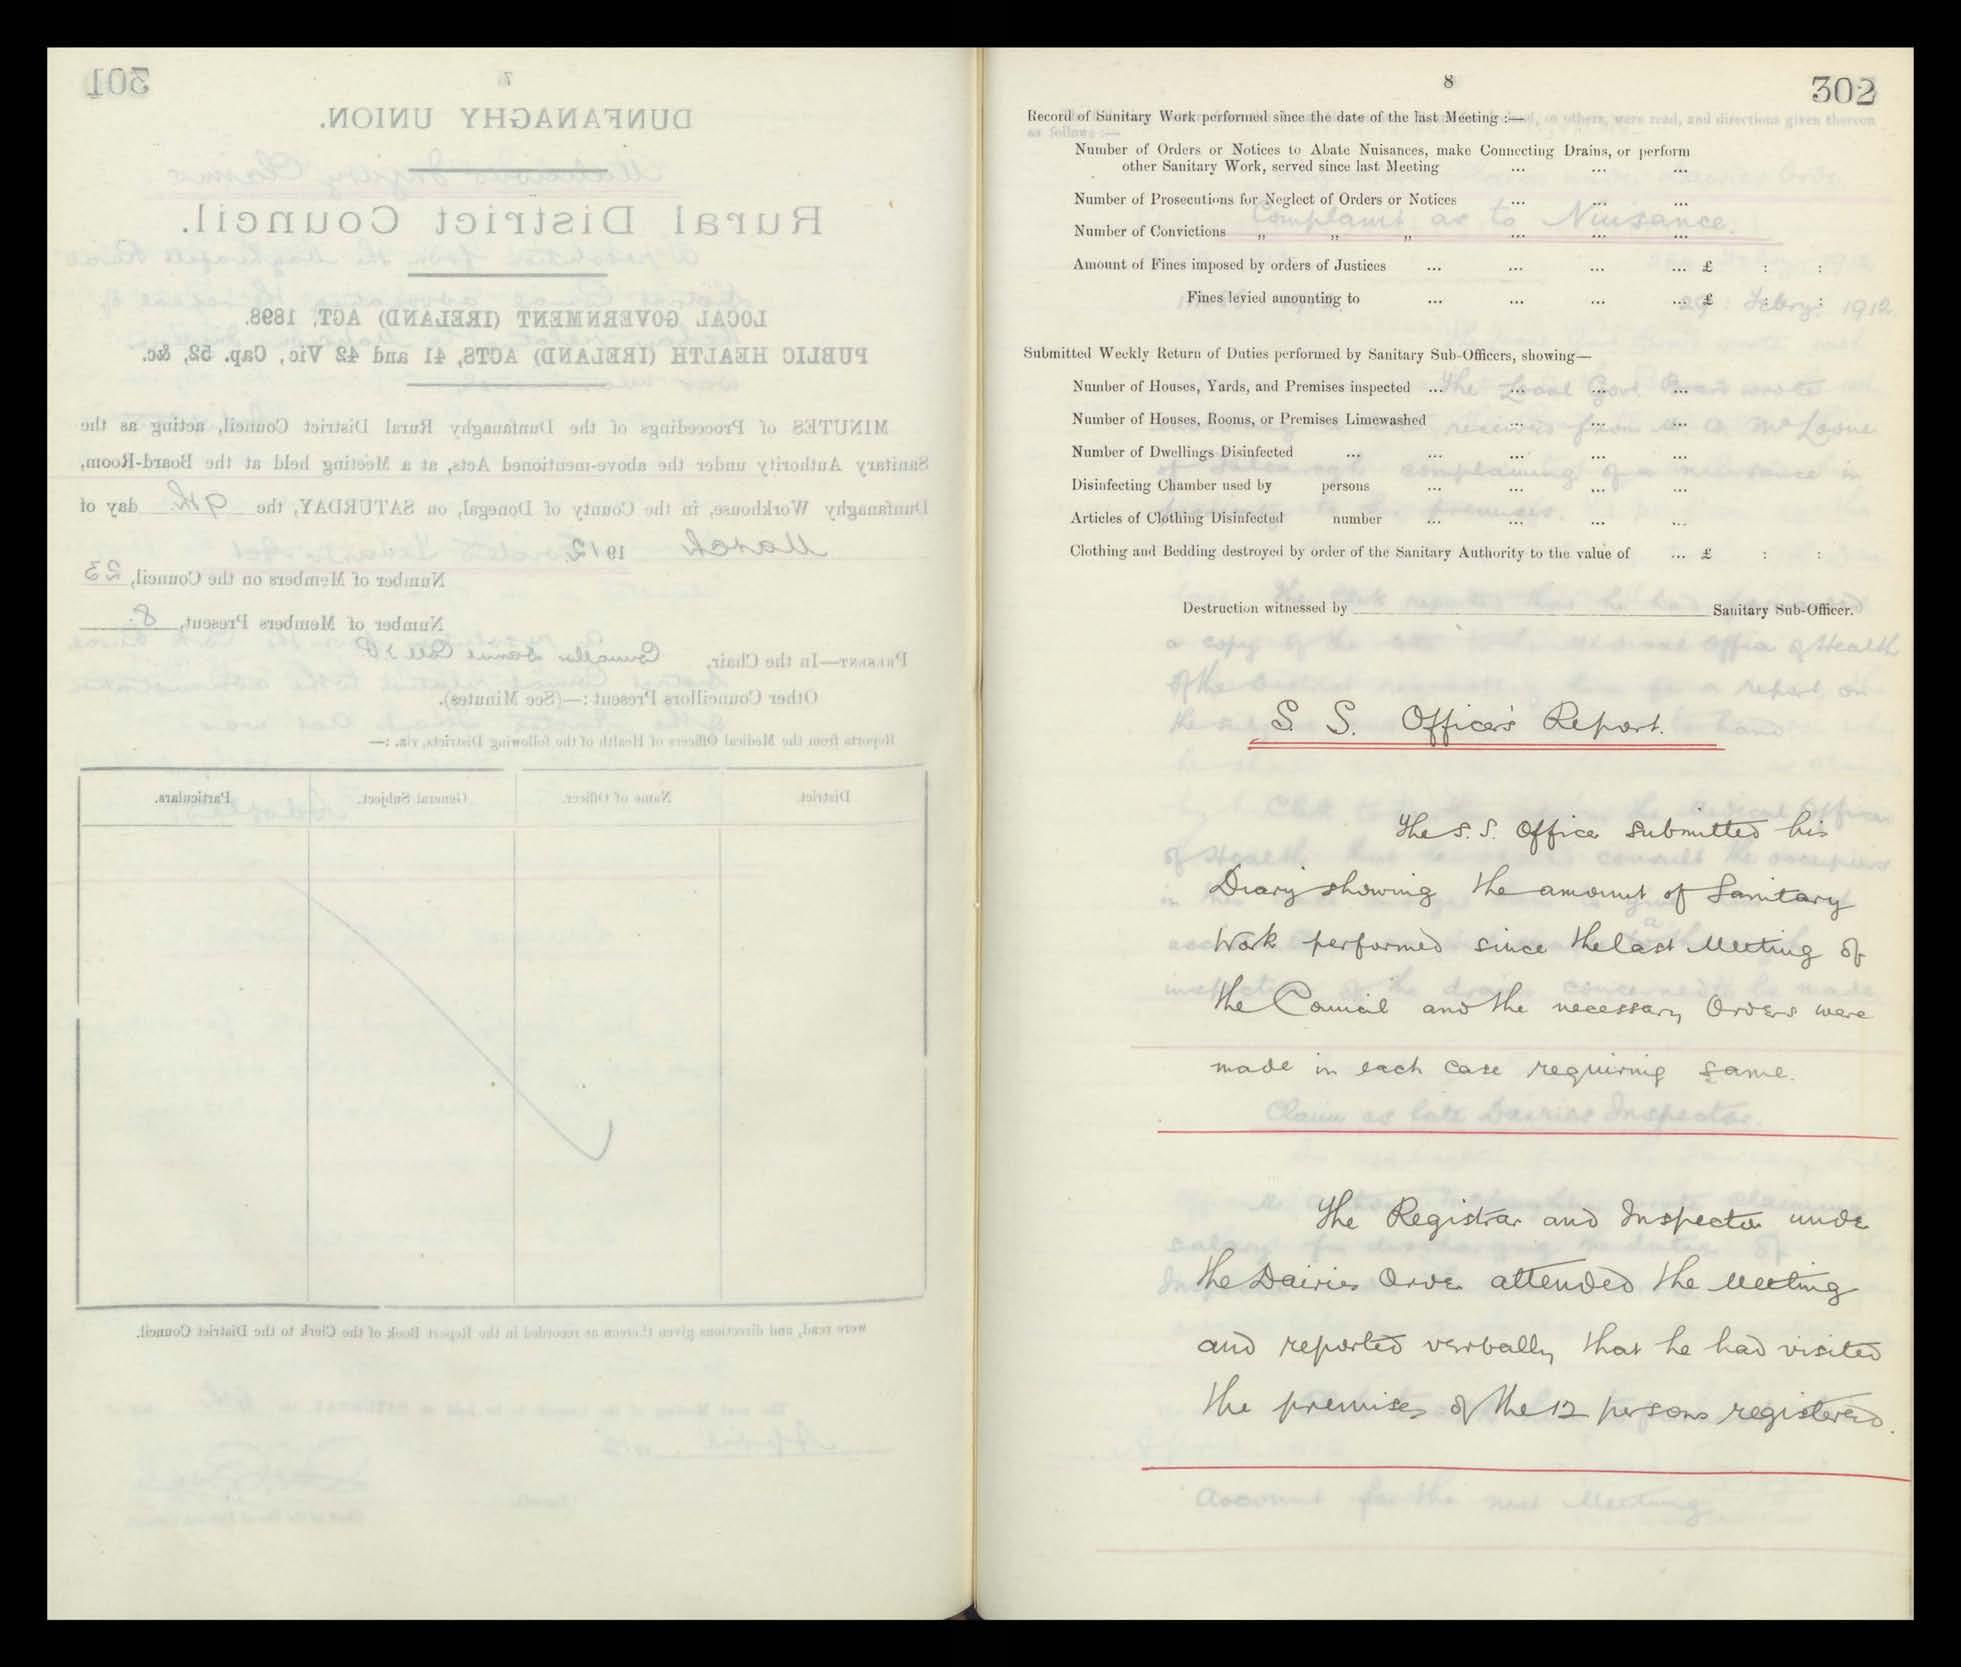 301
7
DUNFANAGHY UNION.
Rural District Council.
LOCAL GOVERNMENT (IRELAND) ACT, 1898.
PUBLIC HEALTH (IRELAND) ACTS, 41 and 42 Vic., Cap. 52, &c.
MINUTES of Proceedings of the Dunfanaghy Rural District Council, acting as the
Sanitary Authority under the above-mentioned Acts, at a Meeting held at the Board-Room,
Dunfanaghy Workhouse, in the County of Donegal, on SATURDAY, the 9th day of
March 1912
Number of Members on the Council, 23
Number of Members Present, 8.
PRESENT—In the Chair, Councillor
Other Councillors Present:—(See Minutes).
Reports from the Medical Officers of Health of the following Districts, viz.:—
District. Name of Officer. General Subject. Particulars.
were read, and directions given thereon as recorded in the Report Book of the Clerk to the District Council.
8
302
Record of Sanitary Work performed since the date of the last Meeting :—
Number of Orders or Notices to Abate Nuisances, make Connecting Drains, or perform
other Sanitary Work, served since last Meeting ... ... ...
Number of Prosecutions for Neglect of Orders or Notices ... ... ...
Number of Convictions „ „ „ ... ... ...
Amount of Fines imposed by orders of Justices ... ... ... ... £ : :
Fines levied amounting to ... ... ... ... £ : :
Submitted Weekly Return of Duties performed by Sanitary Sub-Officers, showing—
Number of Houses, Yards, and Premises inspected ... ... ... ...
Number of Houses, Rooms, or Premises Limewashed ... ... ...
Number of Dwellings Disinfected ... ... ... ... ...
Disinfecting Chamber used by persons ... ... ... ...
Articles of Clothing Disinfected number ... ... ... ...
Clothing and Bedding destroyed by order of the Sanitary Authority to the value of ... £ : :
Destruction witnessed by Sanitary Sub-Officer.
S. S. Officer's Report.
The S. S. Officer submitted his
Diary showing the amount of Sanitary
Work performed since the last Meeting of
the Council and the necessary Orders were
made in each case requiring same.
The Registrar and Inspector under
the Dairies Order attended the Meeting
and reported verbally that he had visited
the premises of the 12 persons registered.